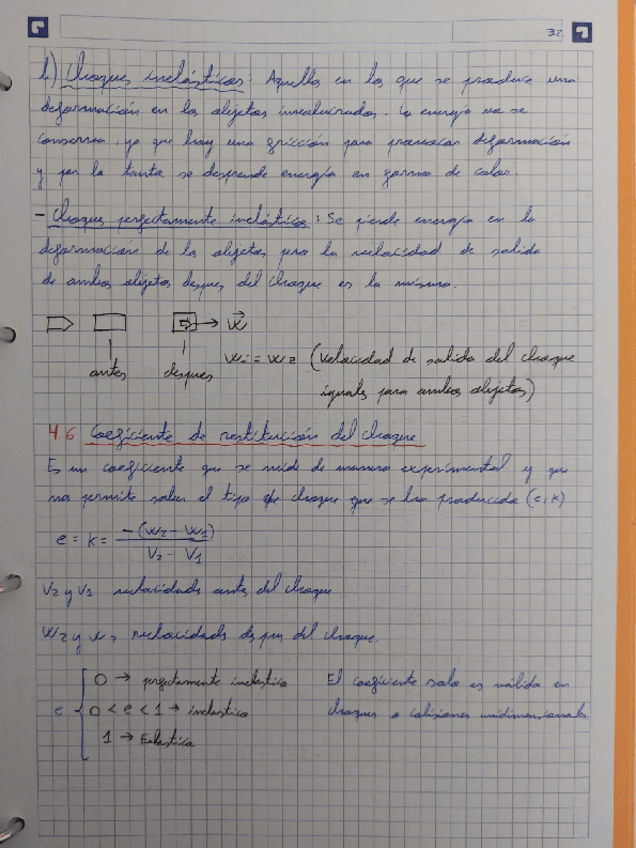 32
b) Choques inelásticos: Aquellos en los que se produce una
deformación en los objetos involucrados. La energía no se
conserva, ya que hay una fricción para provocar deformación
y por lo tanto se desprende energía en forma de calor.
- Choque perfectamente inelástico: Se pierde energía en la
deformación de los objetos pero la velocidad de salida
de ambos objetos despues del choque es la misma.
w⃗
antes despues
W1 = W2 (Velocidad de salida del choque
iguales para ambos objetos)
4.6 Coeficiente de restitución del choque
Es un coeficiente que se mide de manera experimental y que
nos permite saber el tipo de choque que se ha producido (e, k)
e = k = -(W2 - W1) / V2 - V1
V2 y V1 velocidades antes del choque
W2 y W1 velocidades despues del choque.
e { 0 → perfectamente inelastico
0 < e < 1 → inelastico
1 → Elastico
El coeficiente solo es válido en
choques o colisiones unidimensionales